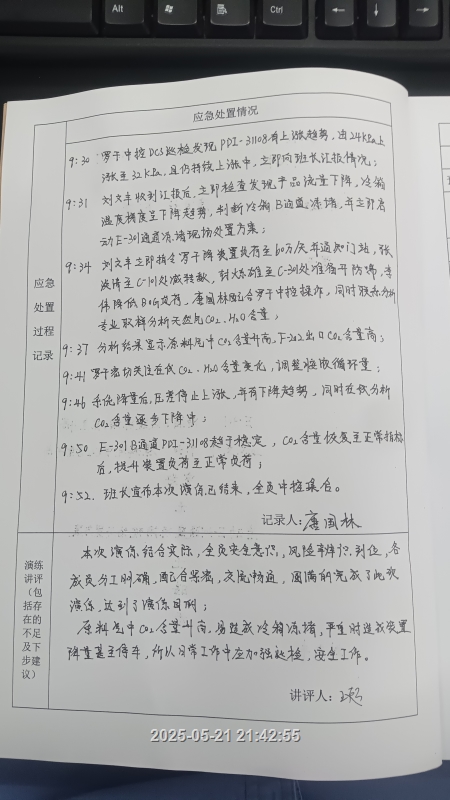 Alt
Ctrl
应急处置情况
应急
处置
过程
记录
9:30 罗于中控DCS巡检发现PDI-31108有上涨趋势，由24KPa上
涨至32KPa，且仍持续上涨中，立即向班长汇报情况；
9:31 刘文丰收到汇报后，立即检查发现产品流量下降，冷箱
温度梯度呈下降趋势，判断冷箱B通道冻堵，并立即启
动E-301通道冻堵现场处置方案；
9:34 刘文丰立即指令罗于降装置负荷至60万/天并通知门站，张
至C-101处减转载，封火雄至C-301处准备干防喘，
体降低BOG负荷，唐国林配合罗于中控操作，同时联系分析
专业取样分析天然气CO2、H2O含量；
9:37 分析结果显示原料气中CO2含量升高，F-202出口CO2含量高；
9:41 罗于密切关注在线CO2、H2O含量变化，调整吸收循环量；
9:46 系统降量后，压差停止上涨，并有下降趋势，同时在线分析
CO2含量逐步下降中；
9:50 E-301B通道PDI-31108趋于稳定，CO2含量恢复至正常指标
后，提升装置负荷至正常负荷；
9:52. 班长宣布本次演练已结束，全员中控集合。
记录人：唐国林
演练
讲评
（包
括存
在的
不足
及下
步建
议）
本次演练结合实际，全员安全意识，风险辨识到位，各
成员分工明确，配合果密，交流畅通，圆满的完成了此次
演练，达到了演练目的；
原料气中CO2含量升高，易造成冷箱冻堵，严重时造成装置
降量甚至停车，所以日常工作中应加强巡检，安全工作。
讲评人：
2025-05-21 21:42:55